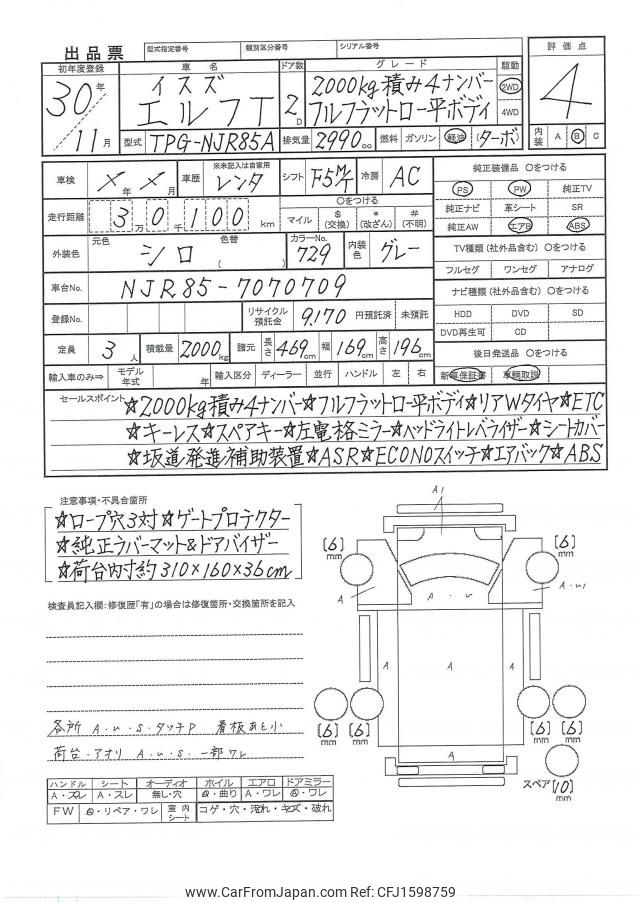 出品票
型式指定番号 類別区分番号 シリアル番号
初年度登録 30年 / 11月
車名 イスズ エルフT
ドア数 2D
グレード 2000kg積み4ナンバー フルフラットロー平ボディ
駆動 2WD 4WD
評価点 4
内装 A B C
型式 TPG-NJR85A 排気量 2990cc 燃料 ガソリン 軽油 (ターボ)
車検 ×年×月 車歴 ※未記入は自家用 レンタ シフト F5M/T 冷房 AC
走行距離 3万0千100km
○をつける マイル $(交換) *(改ざん) #(不明)
外装色 元色 シロ 色替( ) カラーNo. 729 内装色 グレー
車台No. NJR85-7070709
登録No. リサイクル預託金 9,170 円預託済 未預託
定員 3人 積載量 2000kg 諸元 長さ 469cm 幅 169cm 高さ 196cm
輸入車のみ⇒ モデル年式 年 輸入区分 ディーラー 並行 ハンドル 左 右
純正装備品 ○をつける
PS PW 純正TV
純正ナビ 革シート SR
純正AW エアB ABS
TV種類(社外品含む) ○をつける
フルセグ ワンセグ アナログ
ナビ種類(社外品含む) ○をつける
HDD DVD SD
DVD再生可 CD
後日発送品 ○をつける
新車保証書 車輌取説
セールスポイント ☆2000kg積み4ナンバー☆フルフラットロー平ボディ☆リアWタイヤ☆ETC
☆キーレス☆スペアキー☆左電格ミラー☆ヘッドライトレベライザー☆シートカバー
☆坂道発進補助装置☆ASR☆ECONOスイッチ☆エアバック☆ABS
注意事項・不具合箇所
☆ロープ穴3対☆ゲートプロテクター
☆純正ラバーマット&ドアバイザー
☆荷台内寸約310×160×36cm
検査員記入欄:修復歴「有」の場合は修復箇所・交換箇所を記入
各所 A.U.S.タッチP 看板あと小
荷台.アオリ A.U.S.一部ワレ
ハンドル シート オーディオ ホイル エアロ ドアミラー
A・スレ A・スレ 無し・穴 A・曲り A・ワレ A・ワレ
FW A・リペア・ワレ 室内シート コゲ・穴・汚れ・キズ・破れ
A1
[6]mm [6]mm
A A.U A.U1
A A A
[6]mm [6]mm [6]mm [6]mm
A
スペア[10]mm
www.CarFromJapan.com Ref: CFJ1598759